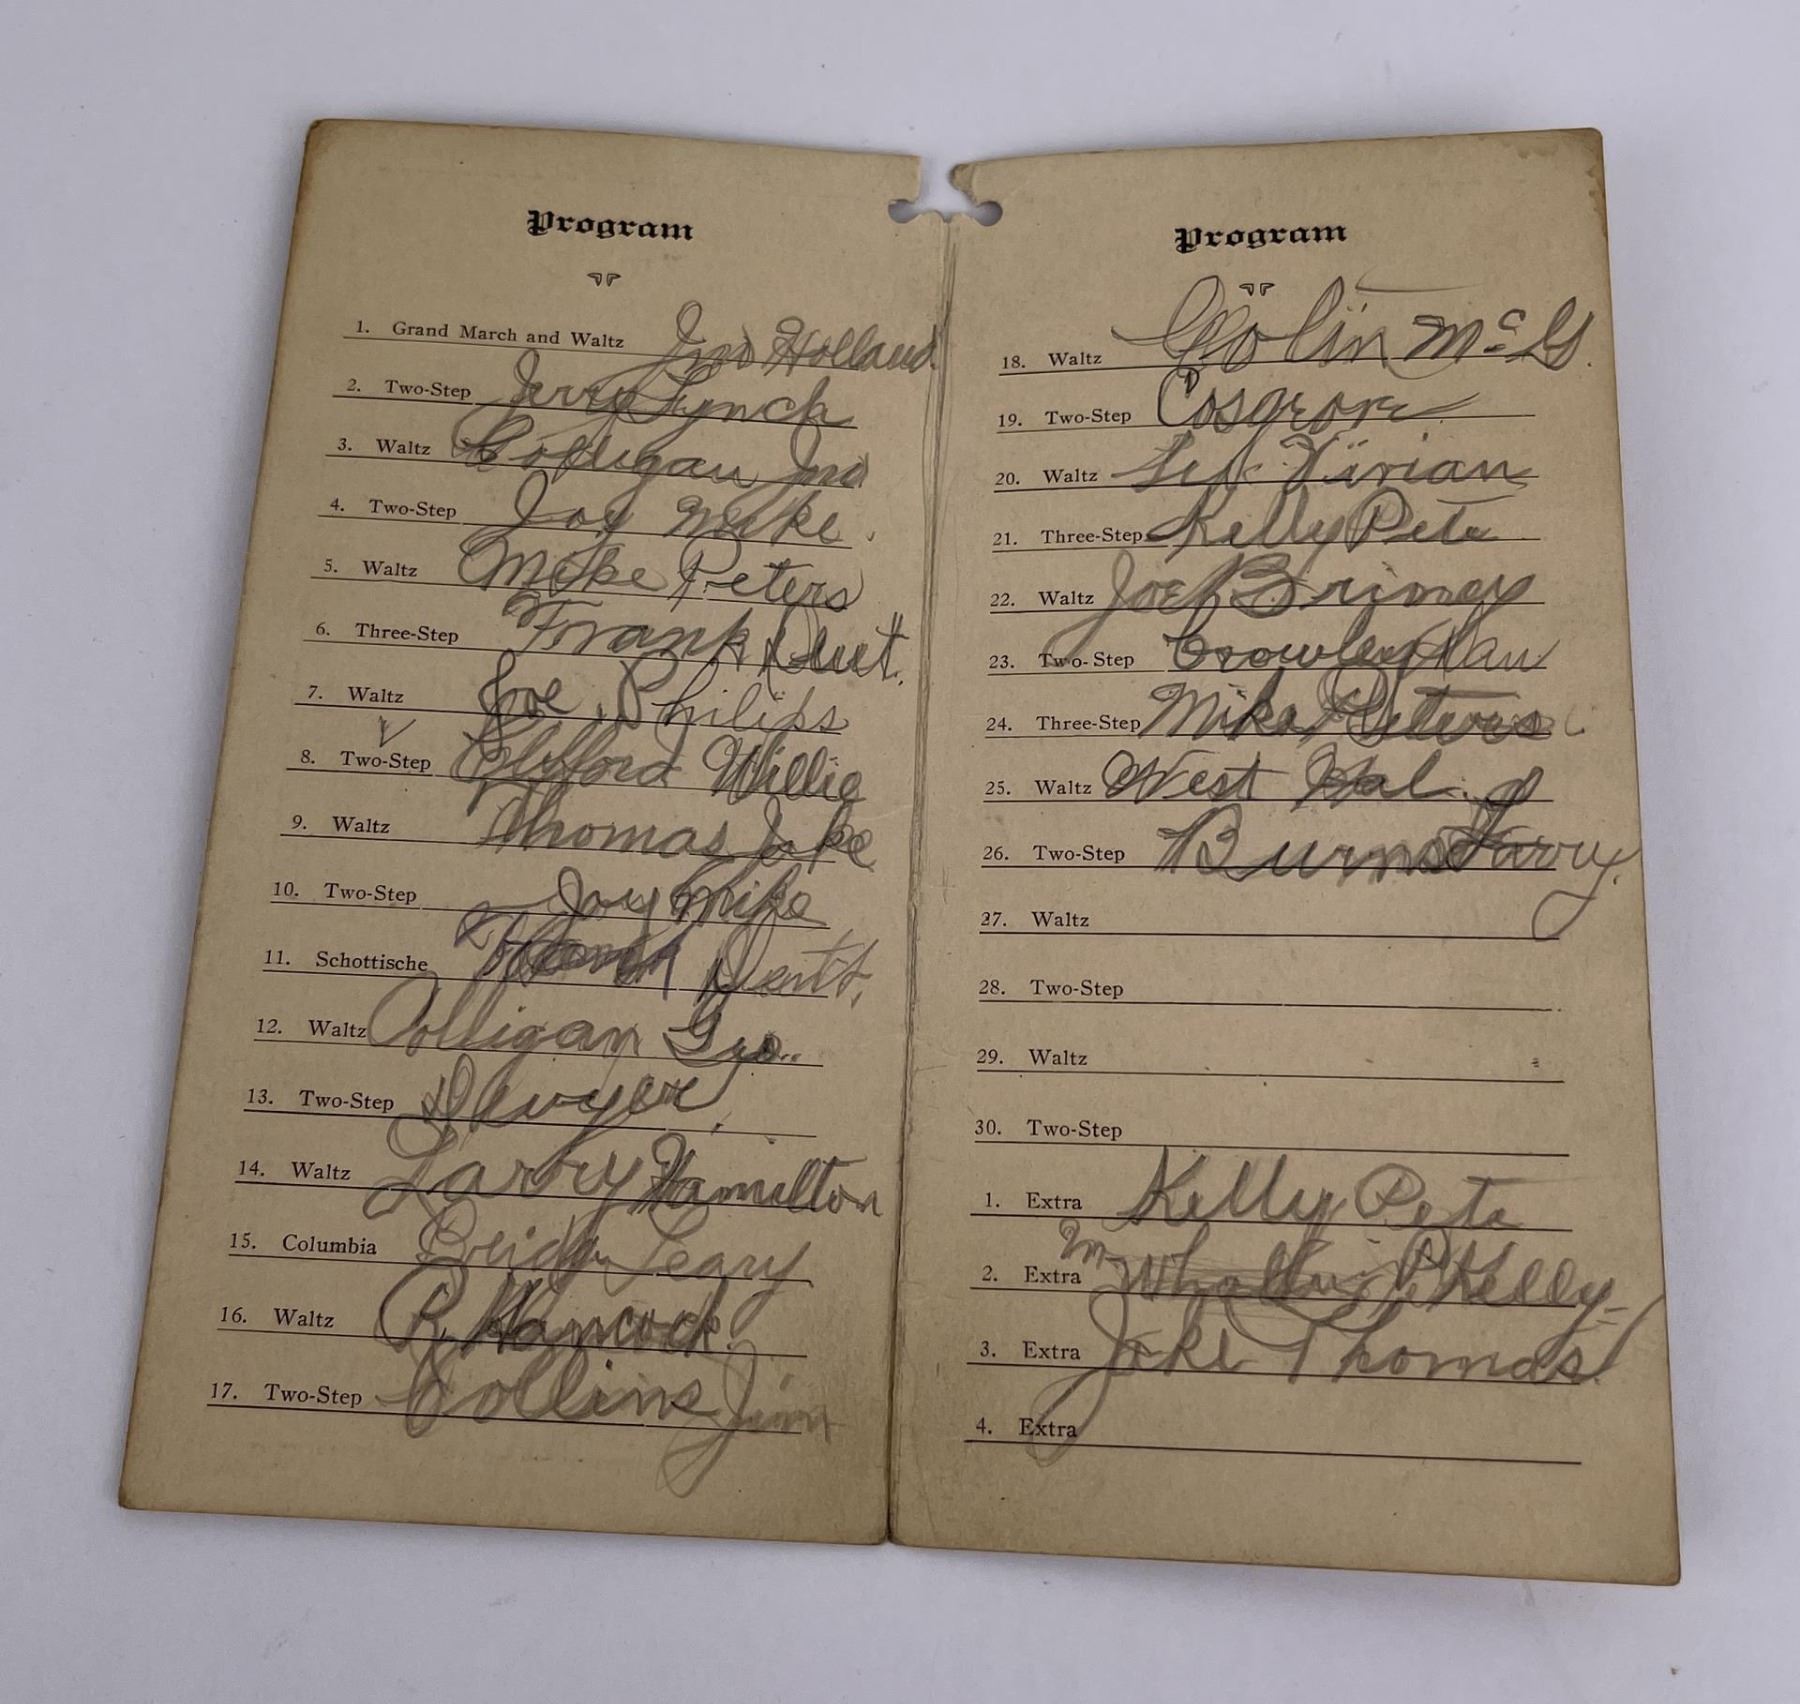 Program
1. Grand March and Waltz Jno Holland.
2. Two-Step Jerry Lynch
3. Waltz Colligan Jno
4. Two-Step Joy Mike.
5. Waltz Mike Peters
6. Three-Step Frank Dent.
7. Waltz Joe Philips
8. Two-Step Clifford Willie
9. Waltz Thomas Jake
10. Two-Step Joy Mike
11. Schottische Frank Dent.
12. Waltz Colligan Geo..
13. Two-Step Dwyer.
14. Waltz Larry Hamilton
15. Columbia Leary
16. Waltz R. Hancock.
17. Two-Step Collins Jim
Program
18. Waltz Colin McG.
19. Two-Step Cosgrove
20. Waltz Vivian
21. Three-Step Kelly Pete
22. Waltz Joe Brimey
23. Two-Step Crowley Dan
24. Three-Step Mike Peters
25. Waltz West Hal.
26. Two-Step Burns Larry.
27. Waltz
28. Two-Step
29. Waltz
30. Two-Step
1. Extra Kelly Pete
2. Extra P Kelly
3. Extra Jake Thomas.
4. Extra